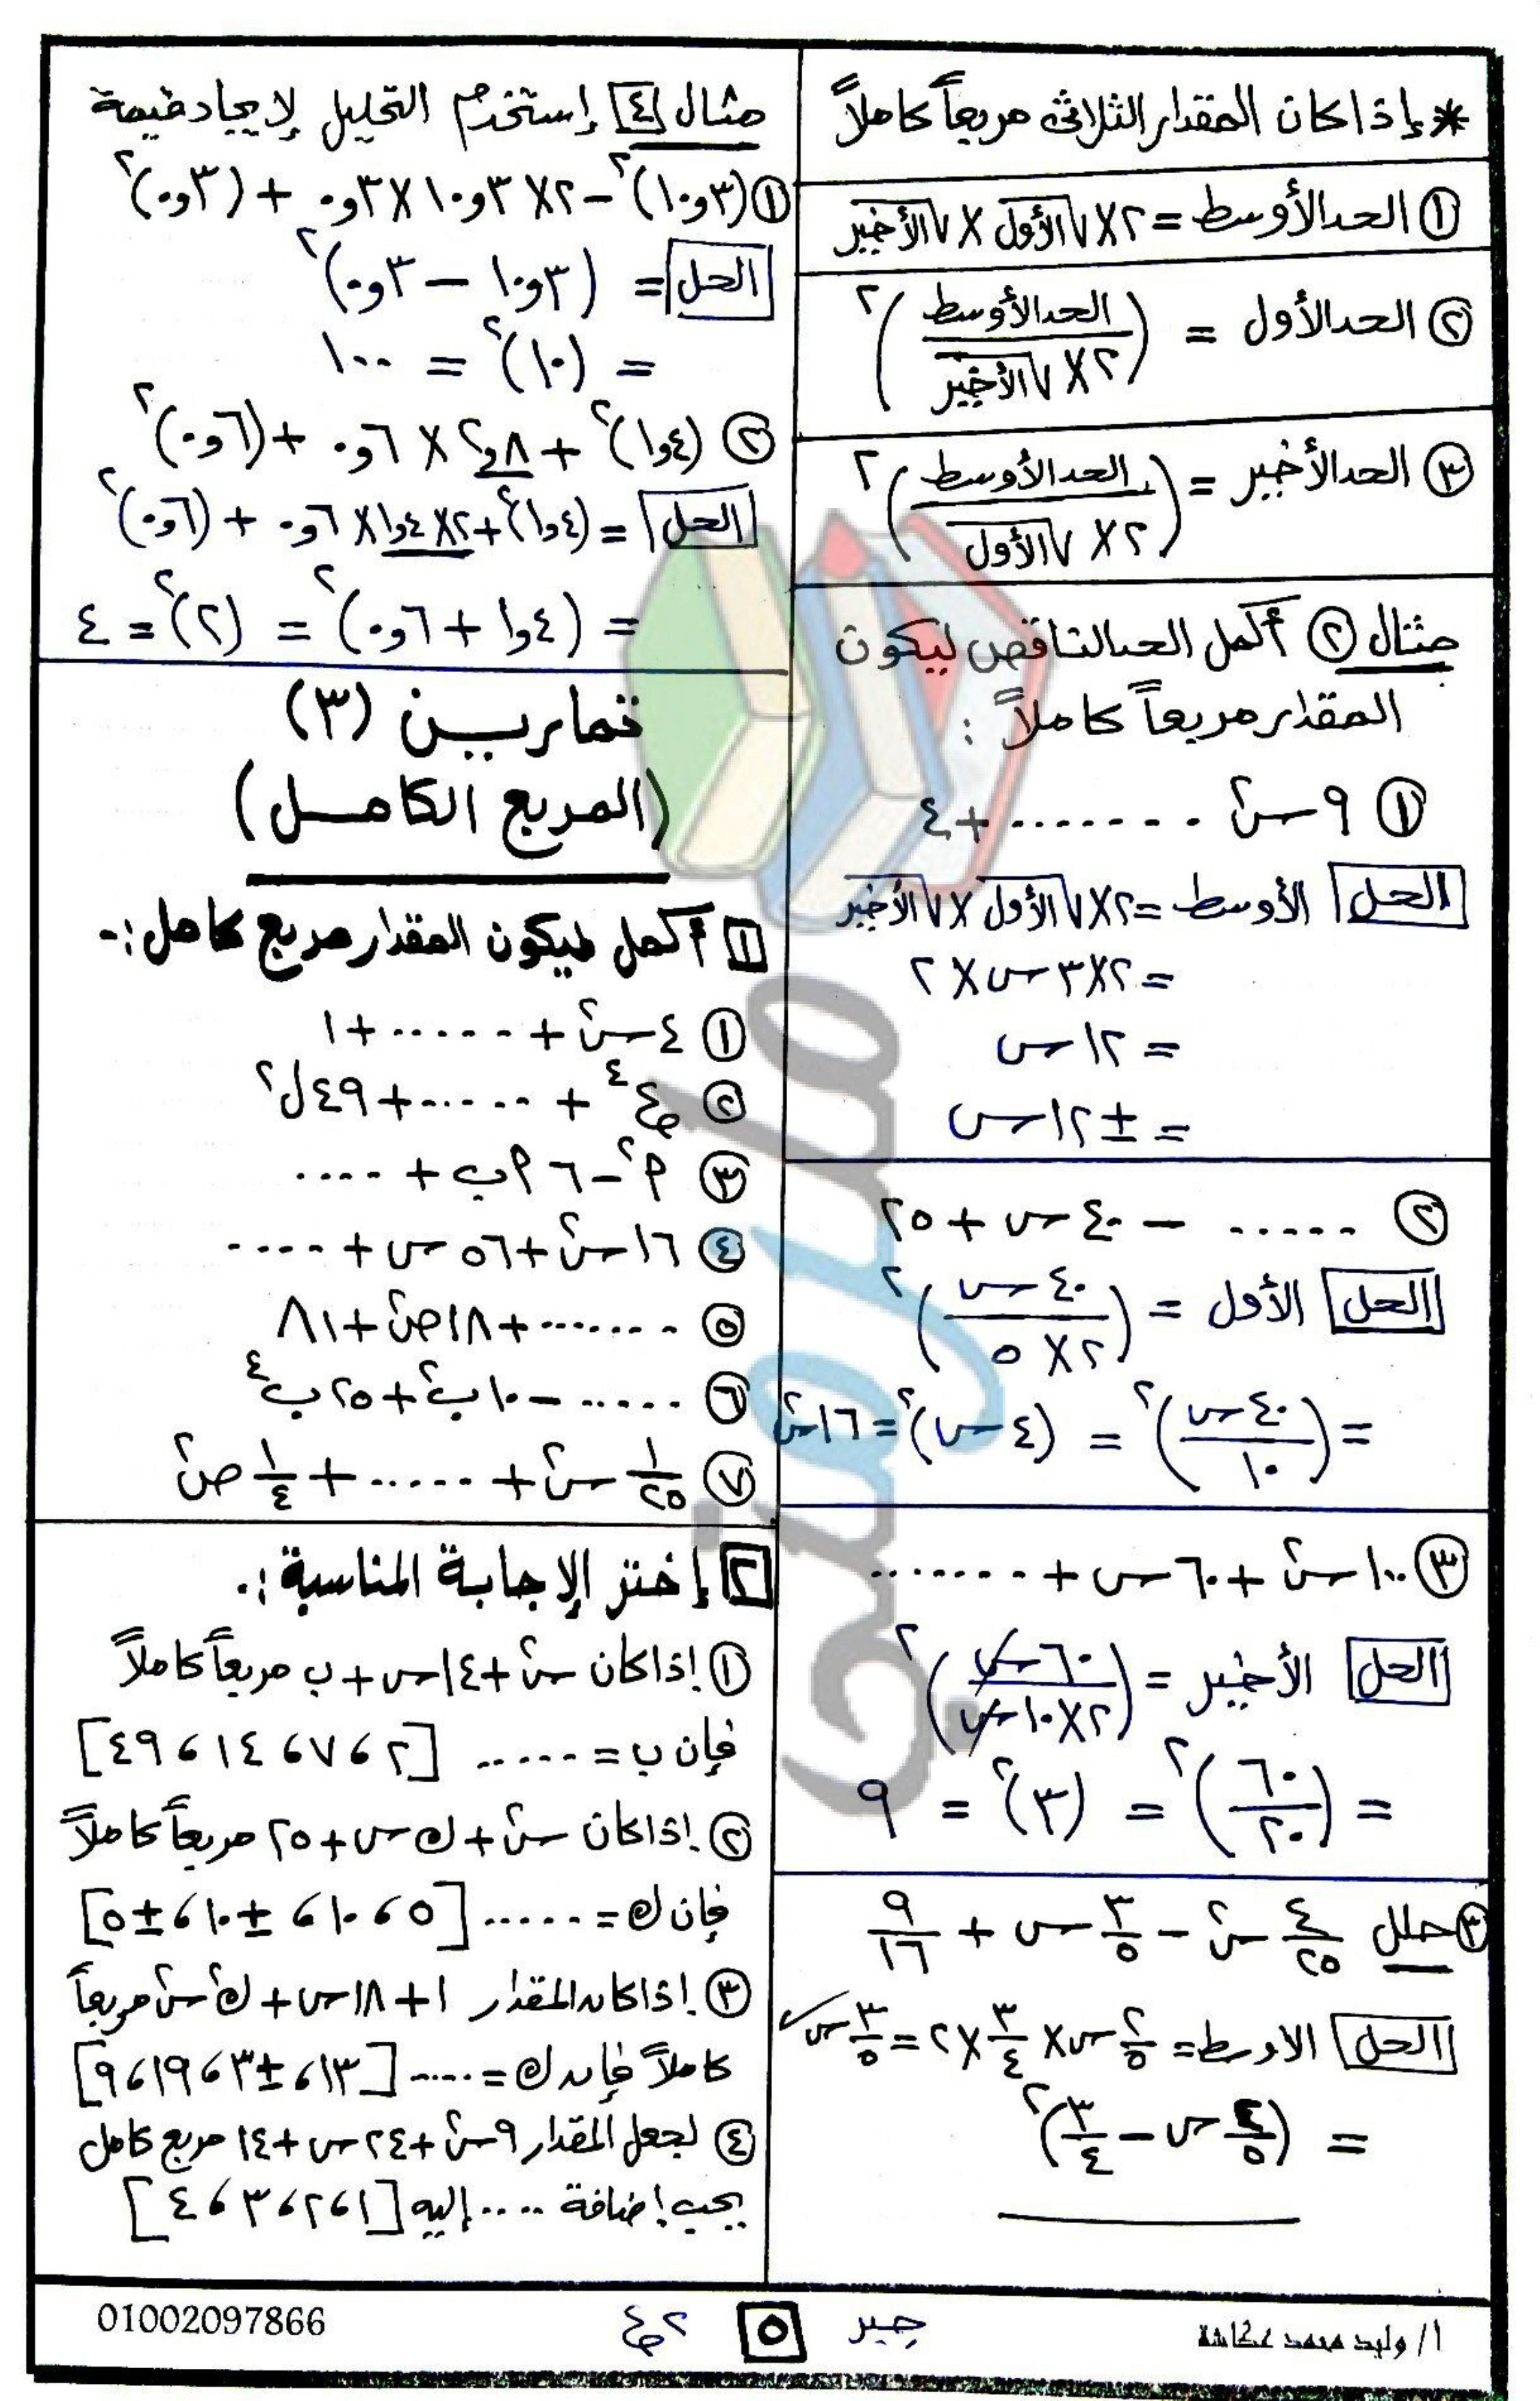 * إذا كان المقدار الثلاثى مربعاً كاملاً
① الحد الأوسط = ٢ × √الأول × √الأخير
② الحد الأول = (الحد الأوسط / ٢ × √الأخير)²
③ الحد الأخير = (الحد الأوسط / ٢ × √الأول)²
مثال ② أكمل الحد الناقص ليكون
المقدار مربعاً كاملاً :
① ٩س² ....... + ٤
الحل الأوسط = ٢ × √الأول × √الأخير
= ٢ × ٣س × ٢
= ١٢س
= ± ١٢س
② ..... − ٤٠س + ٢٥
الحل الأول = (٤٠س / ٢ × ٥)²
= (٤٠س / ١٠)² = (٤س)² = ١٦س²
③ ١٠٠س² + ٦٠س + .......
الحل الأخير = (٦٠س / ٢ × ١٠س)²
= (٦٠ / ٢٠)² = (٣)² = ٩
③ حلل ٤/٢٥ س² − ٣/٥ س + ٩/١٦
الحل الاوسط = ٢/٥ س × ٣/٤ × ٢ = ٣/٥ س ✓
= (٤/٥ س − ٣/٤)²
مثال ٤ إستخدم التحليل لإيجاد قيمة
① (١٠,٣)² − ٢ × ١٠,٣ × ٠,٣ + (٠,٣)²
الحل = (١٠,٣ − ٠,٣)²
= (١٠)² = ١٠٠
② (١,٤)² + ٢,٨ × ٠,٦ + (٠,٦)²
الحل = (١,٤)² + ٢ × ١,٤ × ٠,٦ + (٠,٦)²
= (١,٤ + ٠,٦)² = (٢)² = ٤
تمارين (٣)
(المربع الكامل)
١ أكمل ليكون المقدار مربع كامل :-
① ٤س² + ..... + ١
② ع⁴ + ..... + ٤٩ل²
③ ٩² − ٦ ٩ب + ....
④ ١٦س² + ٥٦س + ....
⑤ ....... + ١٨ص² + ٨١
⑥ ..... − ١٠ب² + ٢٥ب⁴
⑦ ١/٢٥ س² + ..... + ١/٤ ص²
٢ إختر الإجابة المناسبة :.
① إذا كان س² + ١٤س + ب مربعاً كاملاً
فإن ب = ..... [٢ ، ٧ ، ١٤ ، ٤٩]
② إذا كان س² + ك س + ٢٥ مربعاً كاملاً
فإن ك = ..... [٥ ، ١٠ ، ± ١٠ ، ± ٥]
③ إذا كان المقدار ١ + ١٨س + ك² س² مربعاً
كاملاً فإن ك = ..... [١٣ ، ± ٣ ، ١٩ ، ٩]
④ لجعل المقدار ٩س² + ٢٤س + ١٤ مربع كامل
يجب إضافة .... إليه [١ ، ٢ ، ٣ ، ٤]
أ/ وليد محمد عكاشة
جبر ٥ ٢ع
01002097866